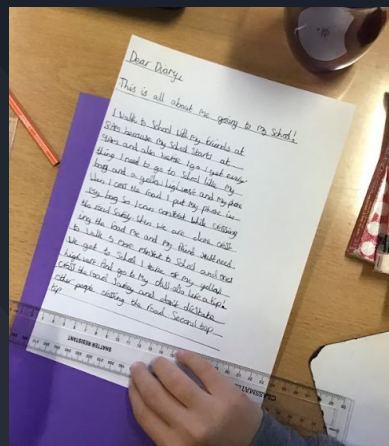 Dear Diary,
This is all about me going to my School!
I walk to School with my friends at
because my School starts at
and also before I go I get every
thing I need to go to School like my
bag and a yellow high vest and my phone
When I cross the road I put my phone in
my bag so I can constrat while crossing
the road safely. then we are done cross
ing the road me and my friend
to walk 5 more to School and once
We get to School I take of my yellow
high vest and go to my
cross the road safley and don't
other people crossing the road. Second top
tip
SHATTER RESISTANT
CLASSMATES